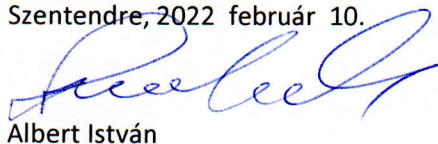 Szentendre, 2022 február 10.
Albert István